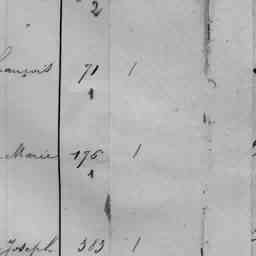 2
François 71 1
1
Marie 176 1
1
Joseph 313 1